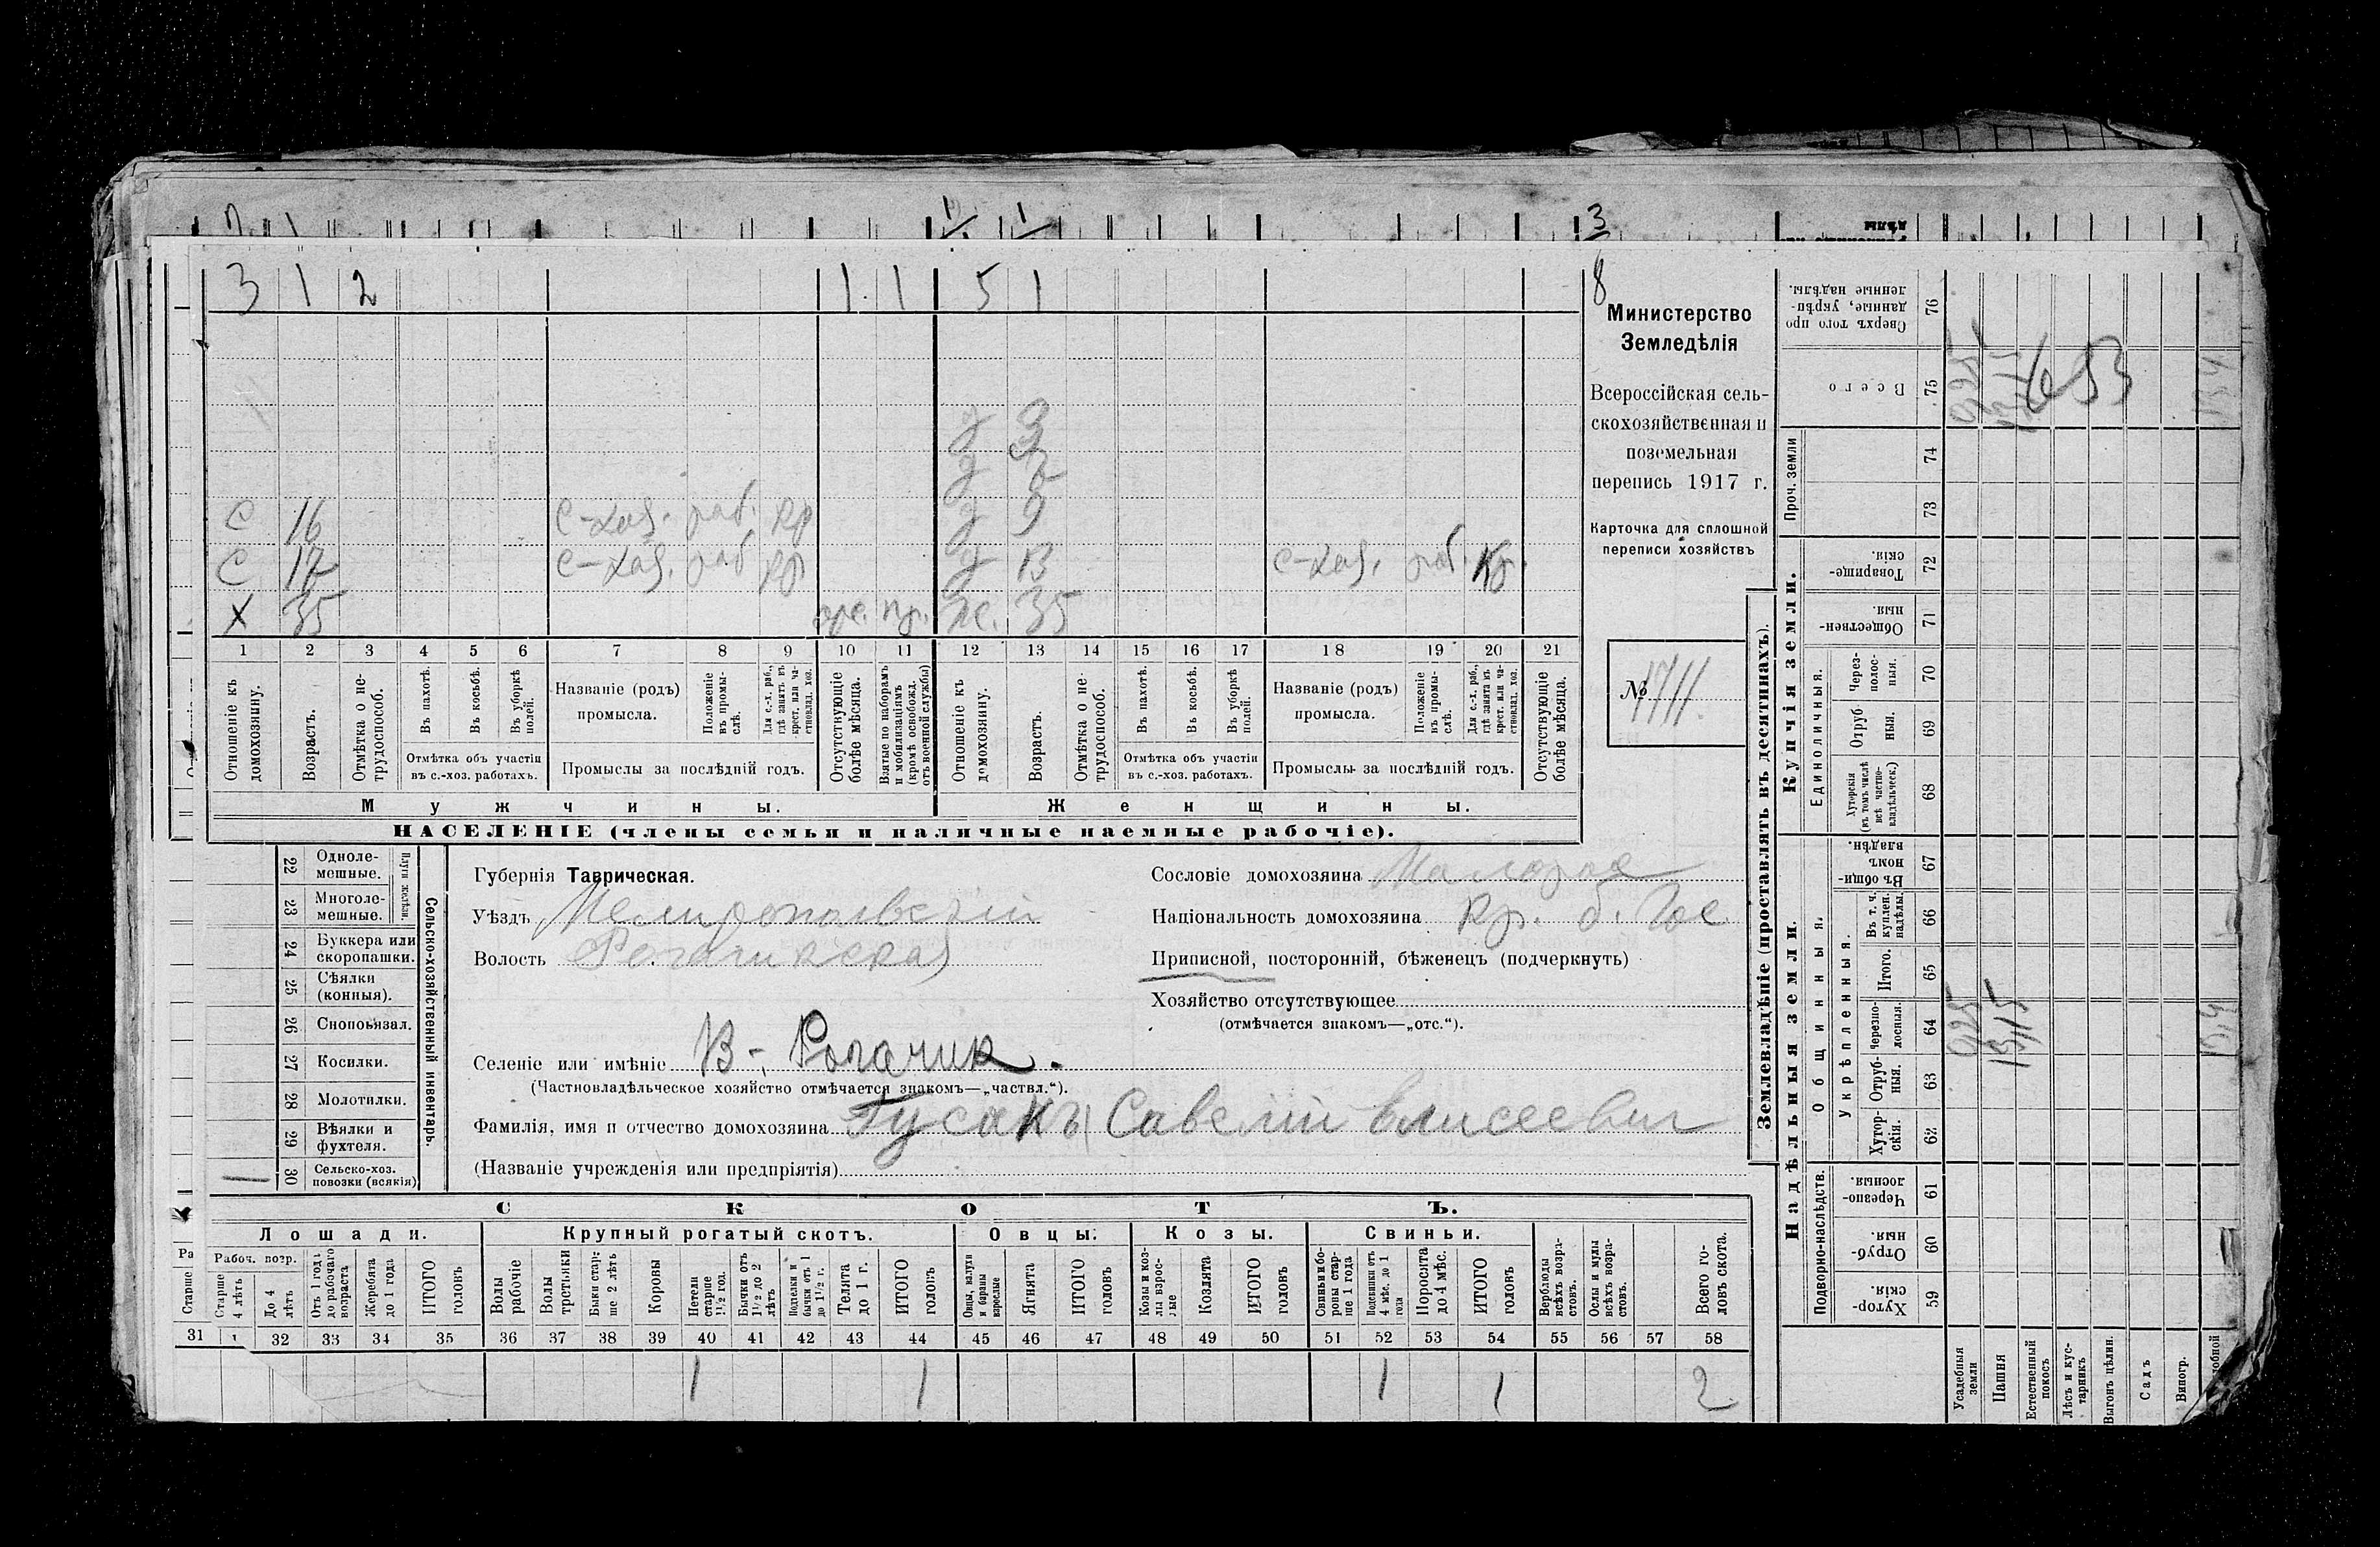 3 1 2 1 1 5 1 8
Министерство
Земледѣлія
Всероссійская сель-
скохозяйственная и
поземельная
перепись 1917 г.
Карточка для сплошной
переписи хозяйствъ
№ 1711
д 3
д
с 16 с-хоз. раб. кр д 9
с 17 с-хоз. раб кр д 13 с-хоз. раб. кр.
х 35 пр. ж. 35
1 2 3 4 5 6 7 8 9 10 11 12 13 14 15 16 17 18 19 20 21
Отношеніе къ домохозяину.
Возрастъ.
Отмѣтка о не-трудоспособ.
Въ пахотѣ.
Въ косьбѣ.
Въ уборкѣ полей.
Отмѣтка объ участіи
въ с.-хоз. работахъ.
Названіе (родъ)
промысла.
Положеніе въ промы-слѣ.
Для с.-х. раб., гдѣ занятъ въ крест. или ча-стновлад. хоз.
Промыслы за послѣдній годъ.
Отсутствующіе болѣе мѣсяца.
Взятые по наборамъ и мобилизаціямъ (кромѣ освобожд. отъ военной службы)
Отношеніе къ домохозяину.
Возрастъ.
Отмѣтка о не-трудоспособ.
Въ пахотѣ.
Въ косьбѣ.
Въ уборкѣ полей.
Отмѣтка объ участіи
въ с.-хоз. работахъ.
Названіе (родъ)
промысла.
Положеніе въ промы-слѣ.
Для с.-х. раб., гдѣ занята въ крест. или ча-стновлад. хоз.
Промыслы за послѣдній годъ.
Отсутствующіе болѣе мѣсяца.
Мужчины.
Женщины.
НАСЕЛЕНІЕ (члены семьи и наличные наемные рабочіе).
Сельско-хозяйственный инвентарь.
Плуги желѣзн.
22 Одноле-мешные.
23 Многоле-мешные.
24 Буккера или скоропашки.
25 Сѣялки (конныя).
26 Сноповязал.
27 Косилки.
28 Молотилки.
29 Вѣялки и фухтеля.
30 Сельско-хоз. повозки (всякія) 1
Губернія Таврическая.
Уѣздъ Мелитопольскій
Волость Рогачикская
Селеніе или имѣніе В-. Рогачик.
(Частновладѣльческое хозяйство отмѣчается знакомъ—„частвл.“).
Фамилія, имя и отчество домохозяина Гусакъ Савелій Елисеевич
(Названіе учрежденія или предпріятія)
Сословіе домохозяина Малорос
Національность домохозяина Кр. б. Гос
Приписной, посторонній, бѣженецъ (подчеркнуть)
Хозяйство отсутствующее
(отмѣчается знакомъ—„отс.“).
СКОТЪ.
Лошади.
Крупный рогатый скотъ.
Овцы.
Козы.
Свиньи.
Рабоч. возр.
Старше 4 лѣтъ
До 4 лѣтъ
Отъ 1 года до рабочаго возраста
Жеребята до 1 года
ИТОГО головъ
Волы рабочіе
Волы третьяки
Быки стар-ше 2 лѣтъ
Коровы
Нетели старше 1½ год.
Бычки отъ 1½ до 2 лѣтъ
Подтелки и бычки отъ 1 до 1½ г.
Телята до 1 г.
ИТОГО головъ
Овцы, валухи и бараны взрослые
Ягнята
ИТОГО головъ
Козы и коз-лы взрос-лые
Козлята
ИТОГО головъ
Свиньи и бо-ровы стар-ше 1 года
Подсвинки отъ 4 мѣс. до 1 года
Поросята до 4 мѣс.
ИТОГО головъ
Верблюды всѣхъ возра-стовъ.
Ослы и мулы всѣхъ возра-стовъ.
Всего го-ловъ скота.
31 32 33 34 35 36 37 38 39 40 41 42 43 44 45 46 47 48 49 50 51 52 53 54 55 56 57 58
1 1 1 1 2
Землевладѣніе (проставлять въ десятинахъ).
Надѣльныя земли.
Купчія земли.
Проч. земли
Подворно-наслѣдств.
Общинныя.
Укрѣпленныя.
Единоличныя.
Сверхъ того про данные, укрѣп-ленные надѣлы. 76
Всего 75
74
73
Товарище-скія. 72
Обществен-ныя. 71
Через-полос-ныя. 70
Отруб ныя. 69
Хуторскія (въ томъ числѣ всѣ частно-владѣльческ.) 68
Въ общи-номъ владѣн. 67
Въ т. ч. куплен. надѣлы. 66
Итого. 65
Черезпо-лосныя. 64
Отруб-ныя. 63
Хутор-скія. 62
Черезпо-лосныя. 61
Отруб-ныя. 60
Хутор-скія. 59
Усадебныя земли
Пашня
Естественный покосъ
Лѣсъ и кус-тарникъ
Выгонъ цѣлин.
Садъ
Виногр.
653